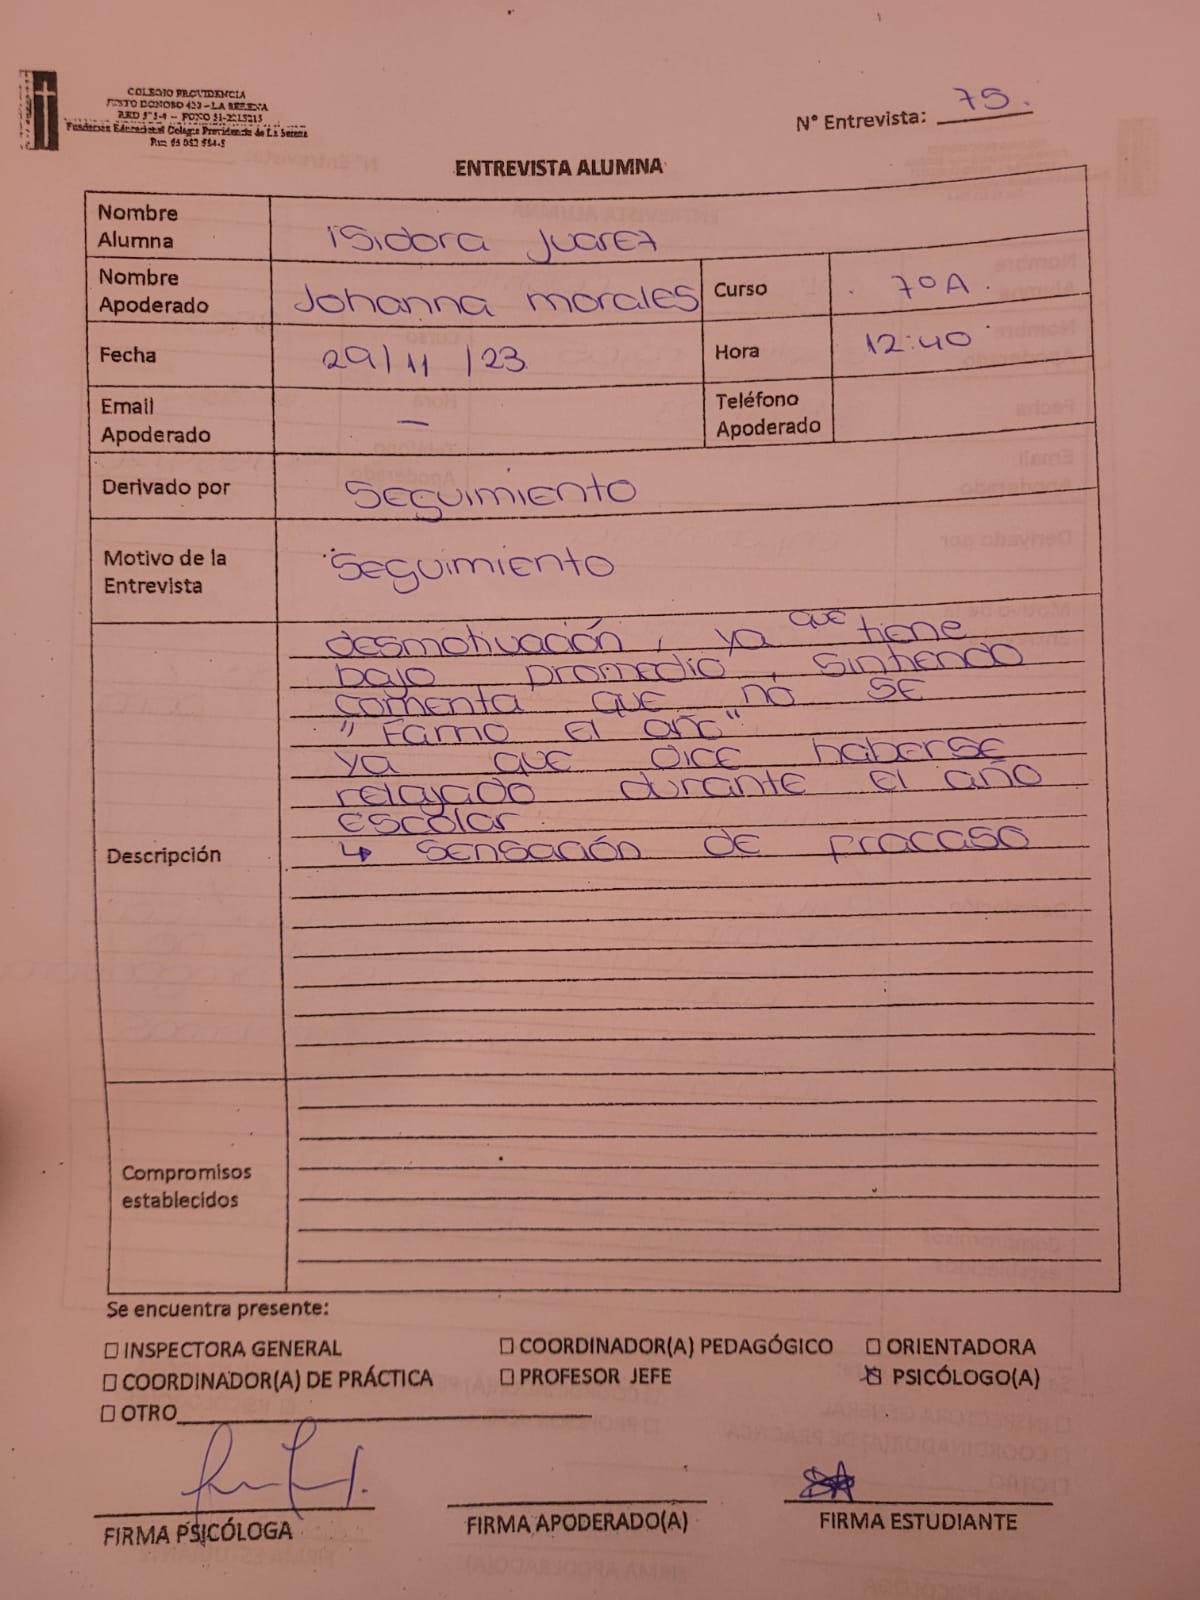 COLEGIO PROVIDENCIA
JUSTO DONOSO 420 – LA SERENA
Fundación Educacional Colegio Providencia de La Serena
N° Entrevista: 75.
ENTREVISTA ALUMNA
Nombre Alumna isidora Juarez
Nombre Apoderado Johanna morales Curso 7°A.
Fecha 29/11/23 Hora 12:40
Email Apoderado — Teléfono Apoderado
Derivado por Seguimiento
Motivo de la Entrevista Seguimiento
Descripción
desmotivación, ya que tiene
bajo promedio, sintiendo
comenta que no se
" Famo el año"
ya que dice haberse
relajado durante el año
escolar.
↳ sensación de fracaso
Compromisos establecidos
Se encuentra presente:
☐ INSPECTORA GENERAL ☐ COORDINADOR(A) PEDAGÓGICO ☐ ORIENTADORA
☐ COORDINADOR(A) DE PRÁCTICA ☐ PROFESOR JEFE ☒ PSICÓLOGO(A)
☐ OTRO
FIRMA PSICÓLOGA FIRMA APODERADO(A) FIRMA ESTUDIANTE